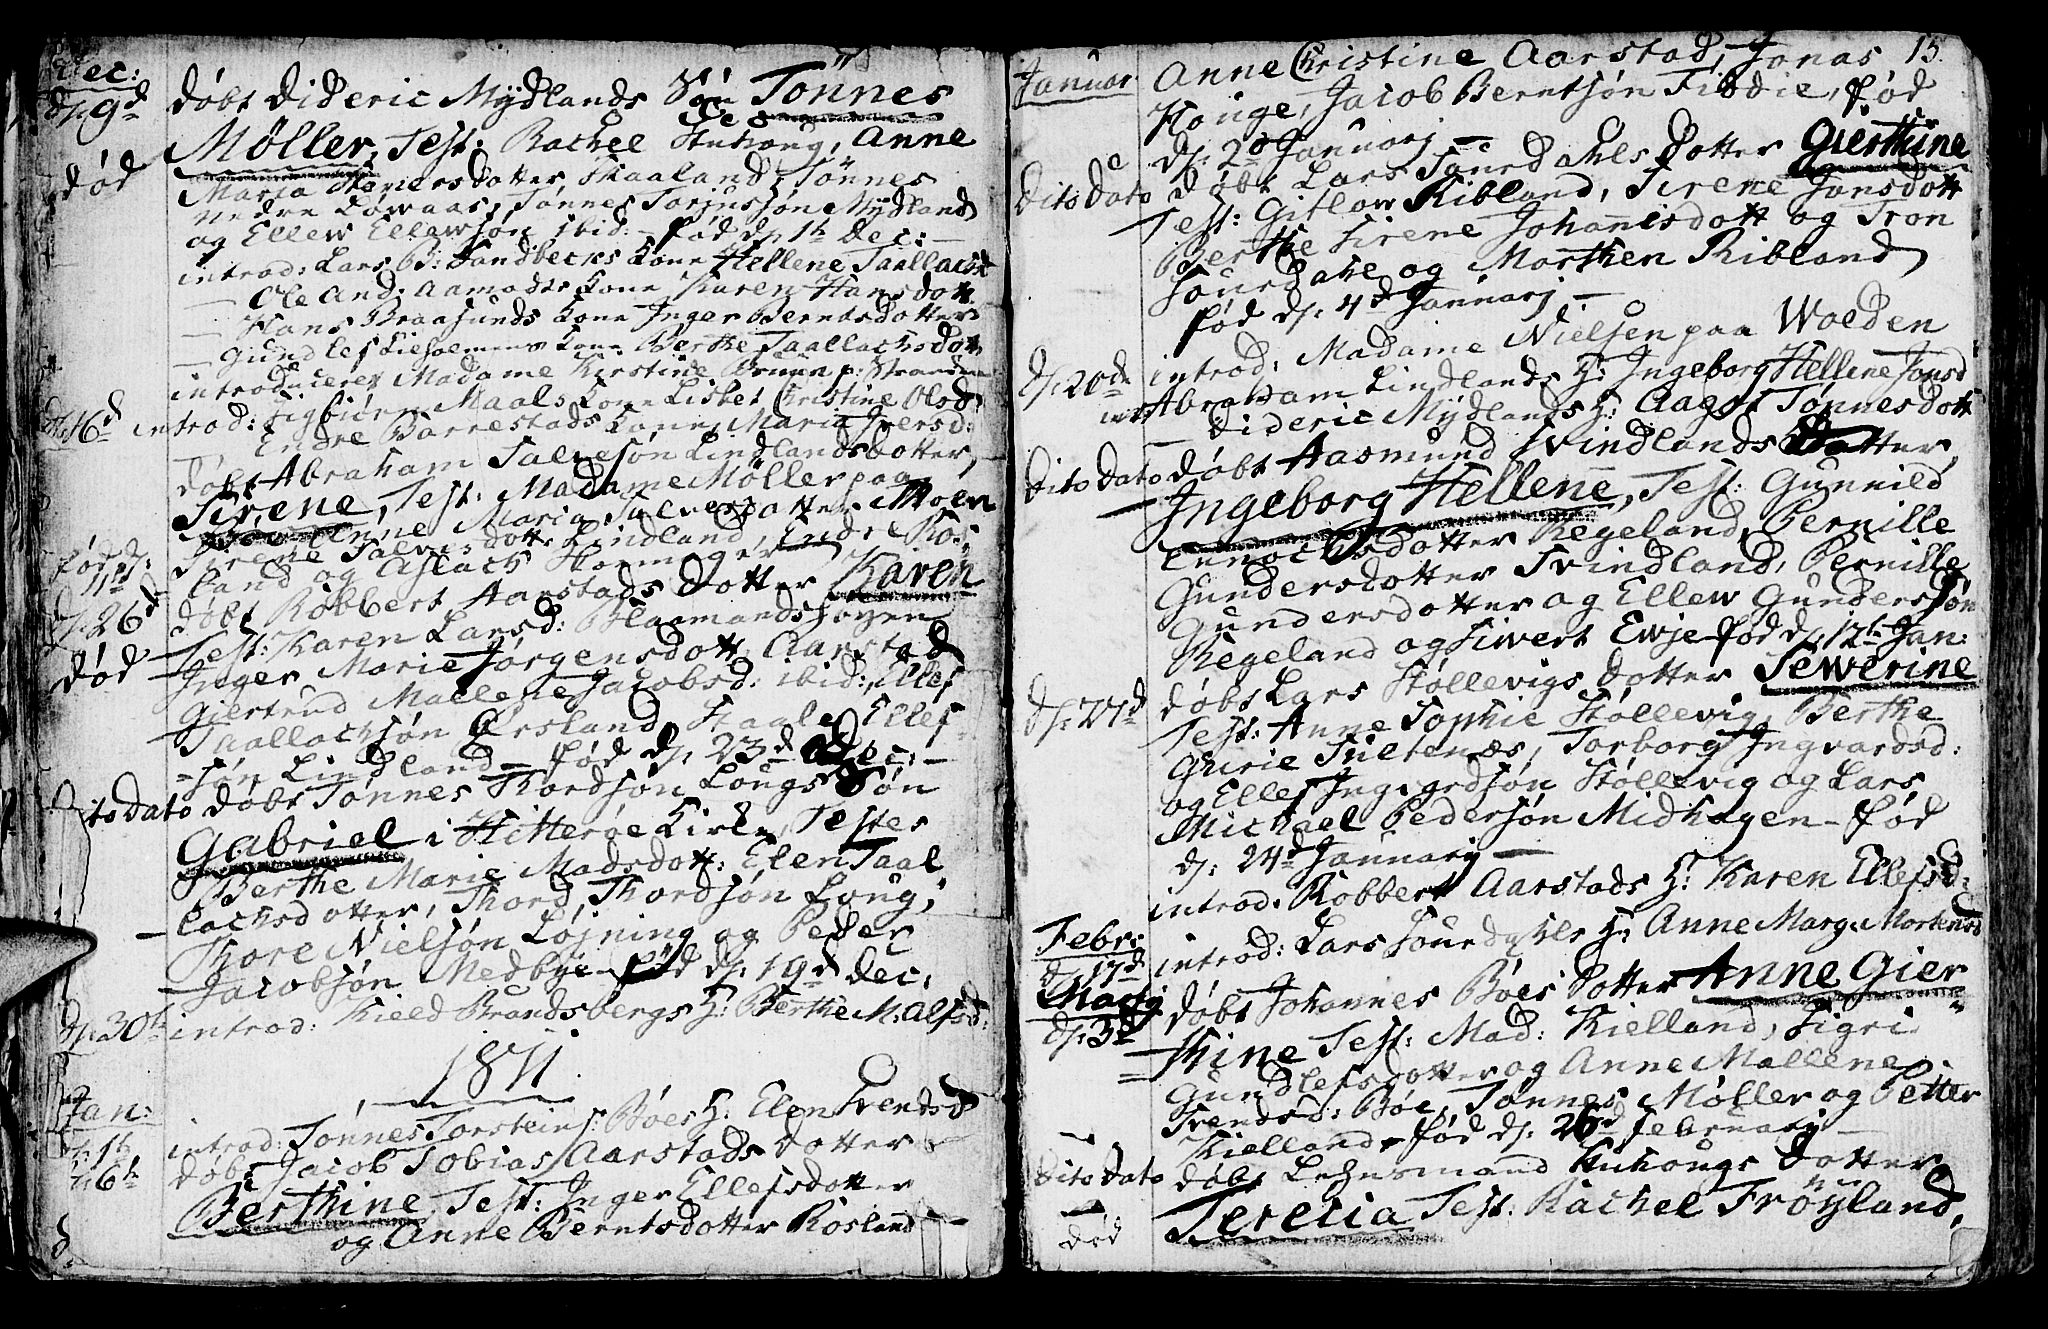 Dec:
d: 9d døbt Dideric Mydlands Søn Tönnes
Møller, Test: Rachel Stuhoug, Anne
død
Maria Reiersdotter Skaaland, Tönnes
nedre Løwaas, Tønnes Torjusøn Mydland
og Ellew Ellewsøn ibid: – fød d: 1te Dec: –
introd: Lars B: Sandbecks Kone Hellene Saallachsd
— Ole And: Aamodts Kone Karen Hansdott
— Hans Braasunds Kone Inger Berntsdotter
— Gundlef Kieholmens Kone Berthe Saallachsdott
introduceret Madame Kirstine Bruun p: Stranden
d: 16d introd: Sigbiørn Maals Kone Lisbet Christine Olsd
— Endre Barrestads Kone Maria Iversd:
døbt Abraham Salvesøn Lindlands dotter,
Sirene, Test: Madame Møller paa
Moen, Anne Maria Salvesdotter
Sirene Salvesdotter Lindland, Endr Ros
land og Aslach
fød d:
11te
d: 26d døbt Robbert Aarstads dotter Karen
Test: Karen Larsd: Blaamandshogen
død Inger Marie Jørgensdott Aarstad
Giertrud Mallene Jacobsd: ibid: Ellef
Saallachsøn Ørsland, Staale Ellef-
-søn Lindland – fød d: 23d Dec: –
Dito Dato døbt Tønnes Thordsøn Lougs Søn
Gabriel i Hitterøe Kirke, Testes
Berthe Marie Madsdott: Elen Saal
lachsdotter, Thord Thordsøn Loug,
Thore Nielsøn Løjning og Peder
Jacobsøn Medbye – fød d: 19d Dec:
d: 30te introd: Kield Brandsbergs H: Berthe M: Alfsd:
1811
Jan:
d: 1te introd: Tønnes Torsteins: Bøes H: Elen Svendsd
d: 6te døbt Jacob Tobias Aarstads dotter
Berthine, Test: Inger Ellefsdotter
og Anne Berntsdotter Rosland
15
Januar Anne Christine Aarstad, Jonas
Houge, Jacob Berntsøn Fidie, fød
d: 2d Januarj –
Dito Dato døbt Lars Sourdahls dotter Gierthrine
Test: Gitlow Ribland, Sirene Jonsdott
Berthe Sirene Johannisdott og Tron
Sourdahl og Morthen Ribland
fød d: 4d Januarj –
d: 20de introd: Madame Nielsen paa Wolden
intr Abraham Lindlands H: Ingeborg Hellene Jonsd
— Dideric Mydlands H: Aagot Tønnesdott
Dito Dato døbt Aasmund Svindlands Datter,
Ingeborg Hellene, Test: Gunnild
Enochsdotter Regeland, Pernille
Gundersdotter Svindland, Pernille
Gundersdotter og Ellew Gundersøn
Regeland og Siwert Ewje fød d: 12te Jan:
d: 27d døbt Lars Støllevigs dotter Sewerine
Test: Anne Sophie Støllevig, Berthe
Gurie Snltenæs, Torborg Ingvardsd:
og Ellef Ingvardsøn Støllevig og Lars
Michael Pedersøn Midhagen – fød
d: 24d Januarj –
introd: Robbert Aarstads H: Karen Ellefsd:
Febr:
d: 17d introd: Lars Sourdahls H: Anne Marg: Mortensd
Martj
d: 3d døbt Johannes Bøes Dotter Anne Gier
thine Test: Mad: Kielland, Sigri
Gundlefsdotter og Anne Mallene
Svendsd: Bøe, Tønnes Møller og Petter
Kielland, fød d: 26d februarj –
Dito Dato døbt Lehnsmand Stuhougs Dotter
Terecia Test: Rachel Frøyland,
død